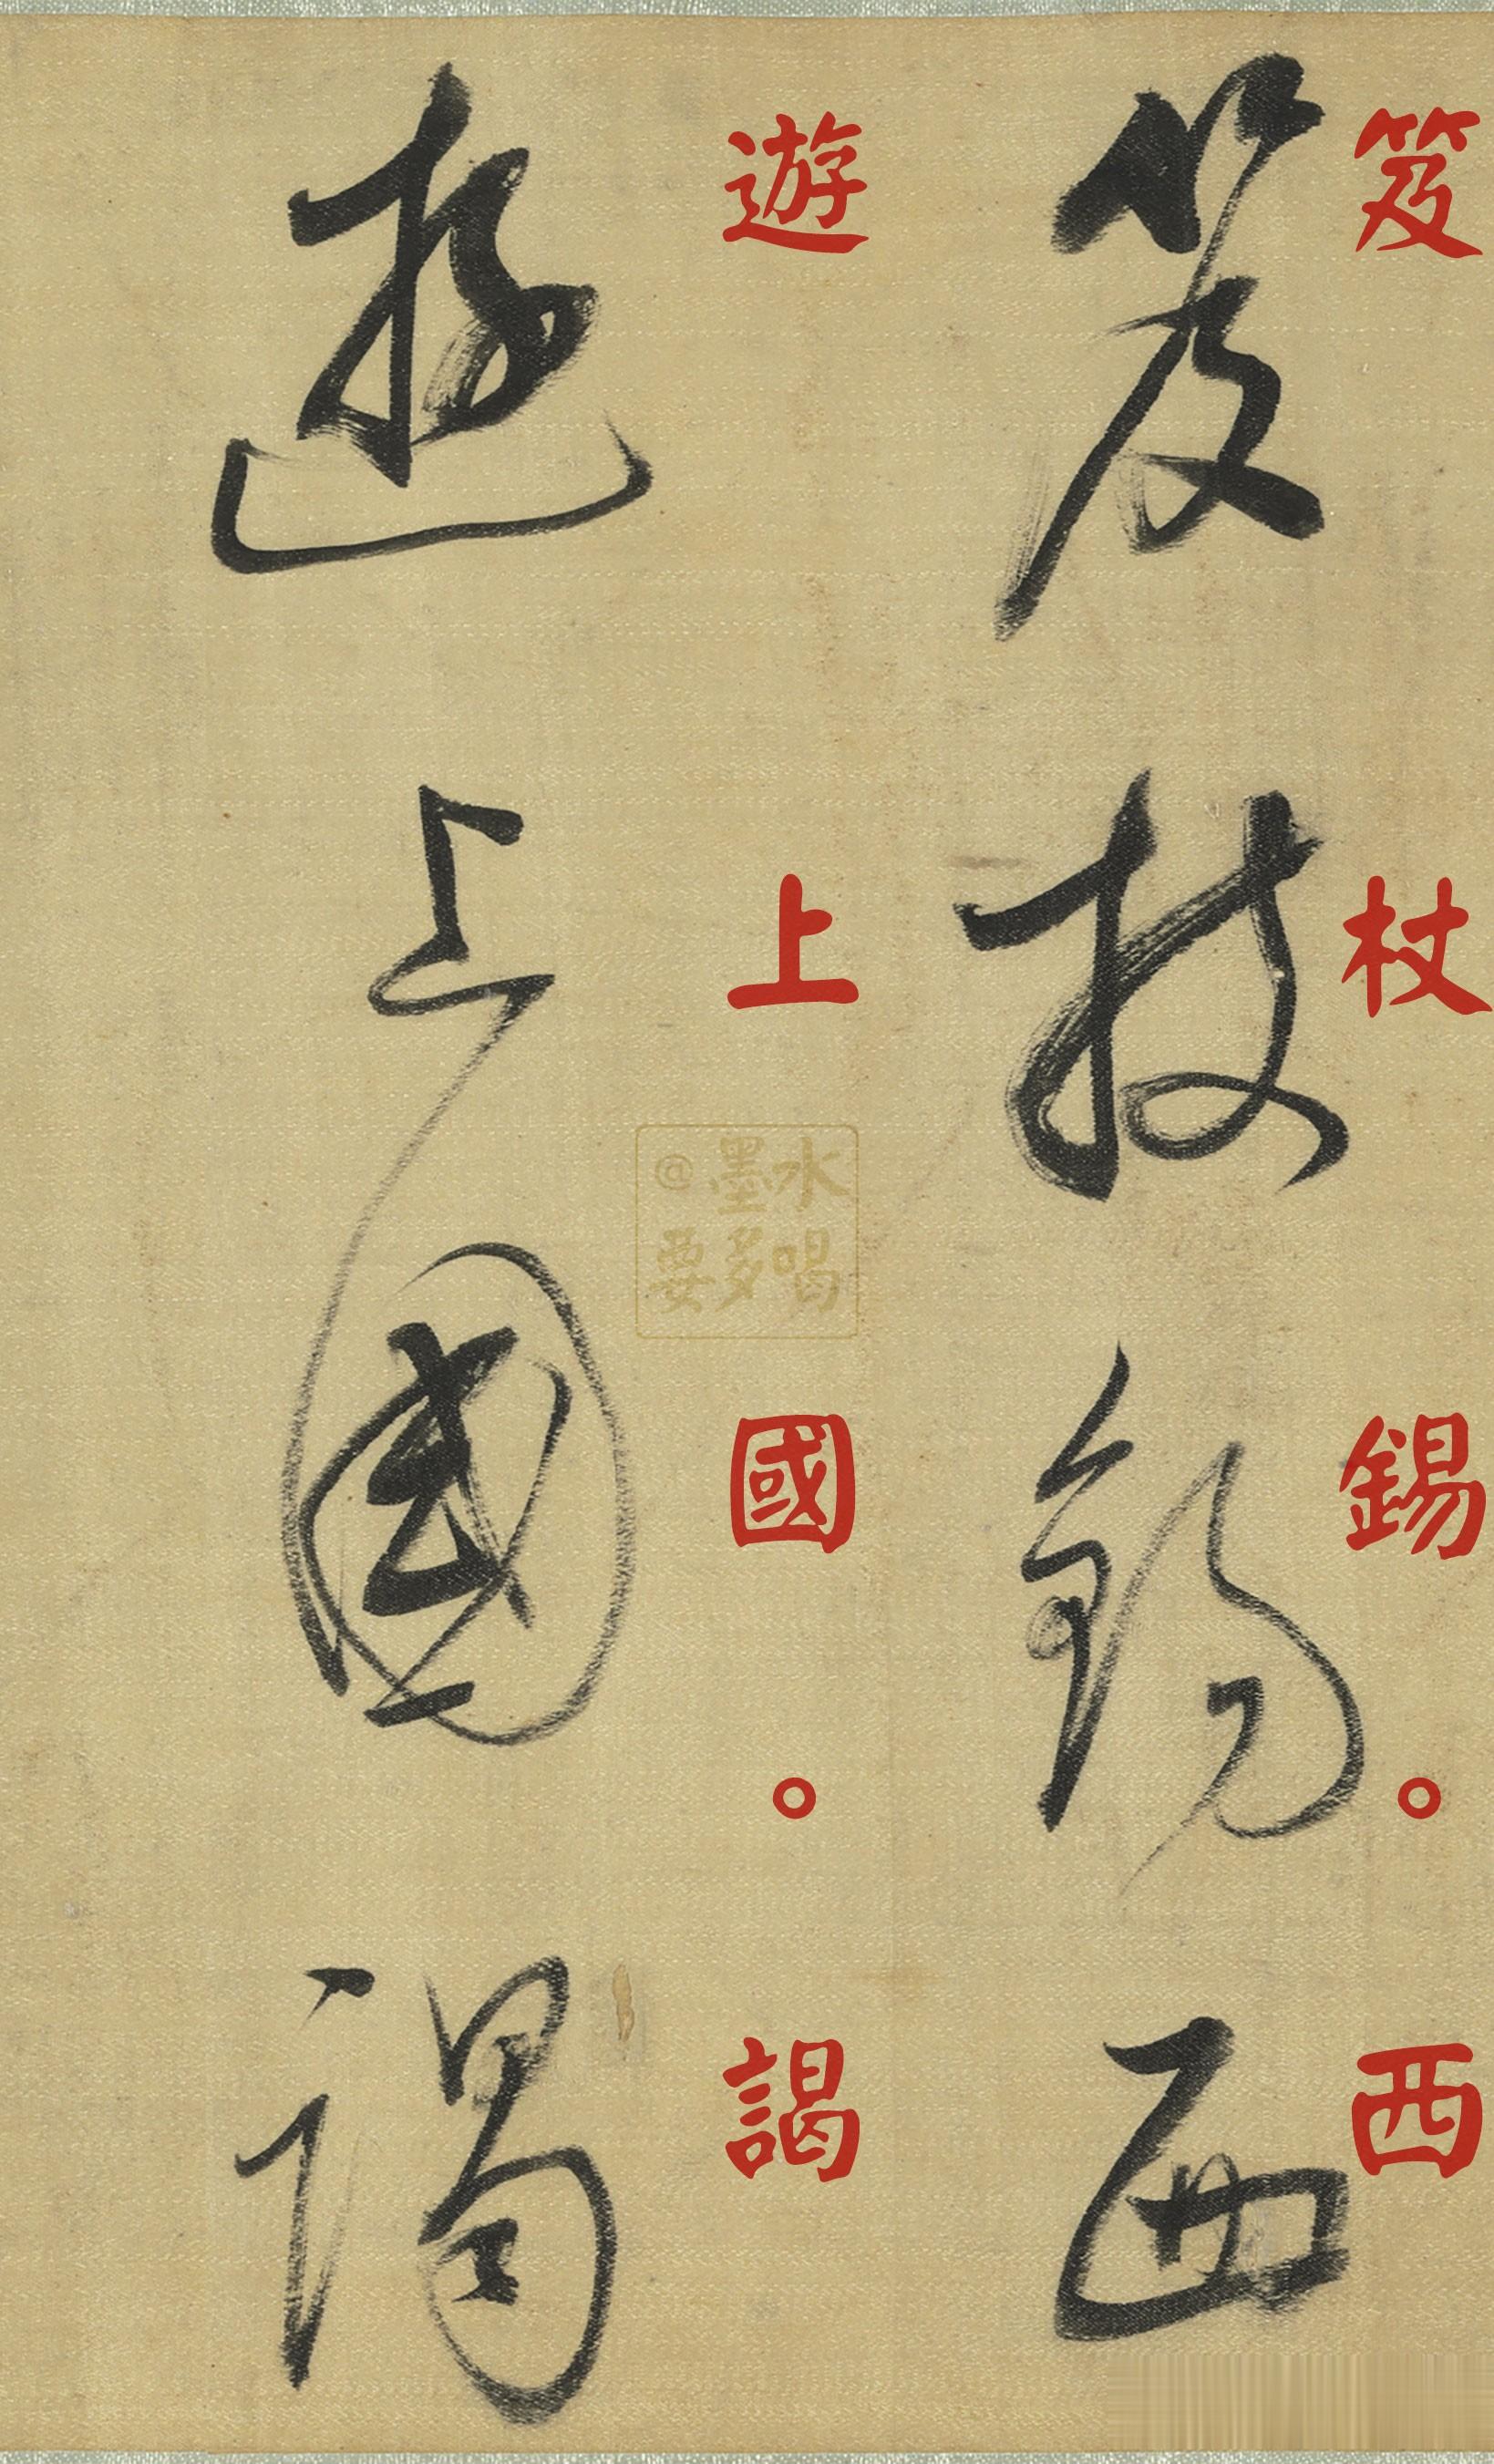 笈杖錫。西
笈杖錫西
遊上國。謁
遊上國謁
@墨水
要多喝